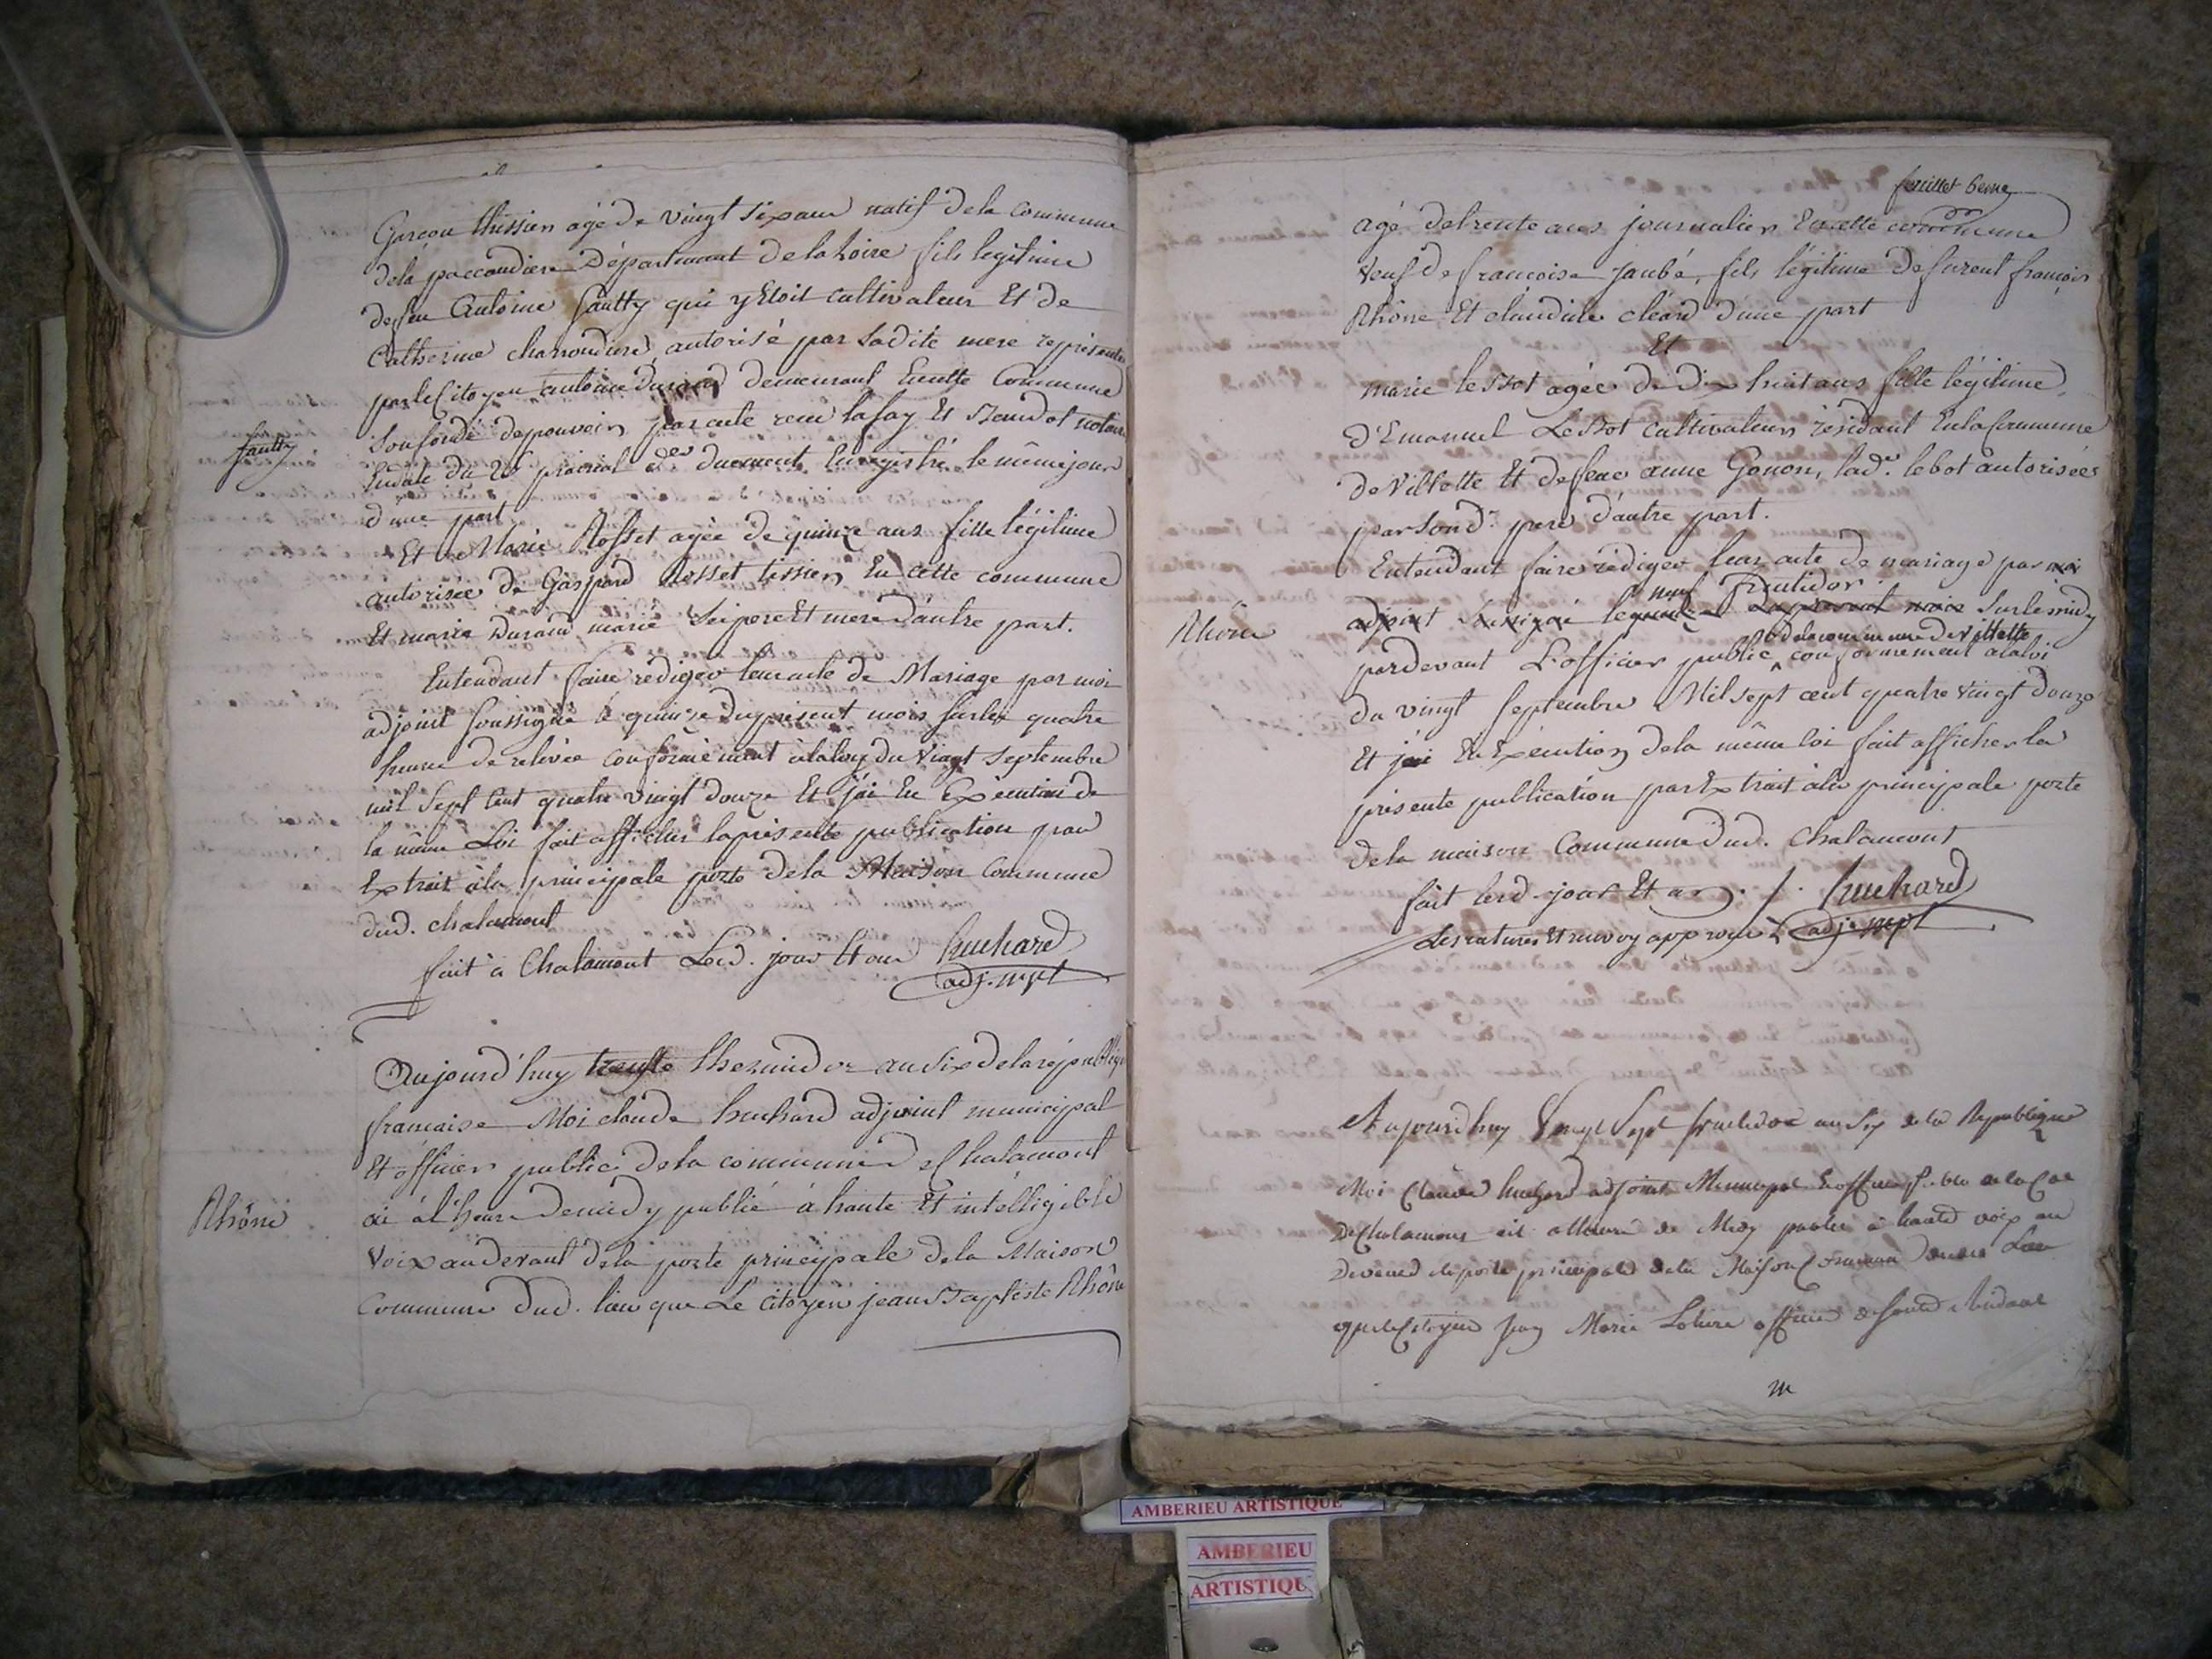 Garcon thissien agé de vingt six ans natif de la commune
de la paccaudiere Département de la Loire fils legitime
de feu Antoine fautty qui y Etoit cultivateur Et de
Catherine charrondiere autorisé par sadite mere représentée
par le Citoyen antoine durand demeurant Encette Commune
Son fondé de pouvoir par acte recu lafay Et notaire
En date du prairial der duement Enregistré le même jour
d'une part
fautty
Et Marie Rosset agée de quinze ans fille légitime
autorisée de Gaspard Rosset tissier En cette commune
Et marie Durand marié Sei pere Et mere d'autre part.
Entendant faire rediger leur acte de Mariage par moi
adjoint soussigné le quinze du présent mois sur les quatre
heure de relévée conformément à la loy du Vingt Septembre
mil Sept Cent quatre vingt douze Et j'ai En Exécution de
la même Loi fait afficher la présente publication par
Extrait à la principale porte de la Maison Commune
dud. chalamont
fait à Chalamont Led. jour Et an huchard
adj. mpl
Aujourd'huy trente thermidor an Six de la république
francaise Moi claude huchard adjoint municipal
Et officier public de la commune de Chalamont
ai à l'heure de midy publié à haute Et intélligible
Voix au devant de la porte principale de la Maison
Commune dud. lieu que Le Citoyen jean Baptiste Rhône
Rhône
feuillet 6eme
agé de trente ans journalier En cette commune
Veuf de francoise Jaubé, fils légitime de furent francois
Rhône Et claudine cléard d'une part
Et
marie lebot agée de Dix huit ans fille légitime
d'Emanuel Lebot Cultivateur résidant En la Commune
de Villette Et de feue anne Gonon, lade. lebot autorisée
par Sond. pere d'autre part.
Entendant faire rédiger leur acte de mariage par moi
neuf fructidor
adjoint soussigné le du present mois sur le midy
Rhône
de la commune de villette
pardevant L'officier public conformément à la loi
du vingt Septembre Mil sept cent quatre vingt douze
Et j'ai En Exécution de la même loi fait afficher la
présente publication par Extrait à la principale porte
de la maison Commune dud. Chalamont
fait led. jour Et an huchard
Les ratures Et renvoy approuvé adj. mpl
Aujourdhuy Vingt Sept fructidor an Six de la Republique
Moi Claude huchard adjoint Municipal
de Chalamont ai a lheure de Midy publié à haute voix au
devant de porte principale de la Maison Commune
que le Citoyen Marie officier de santé